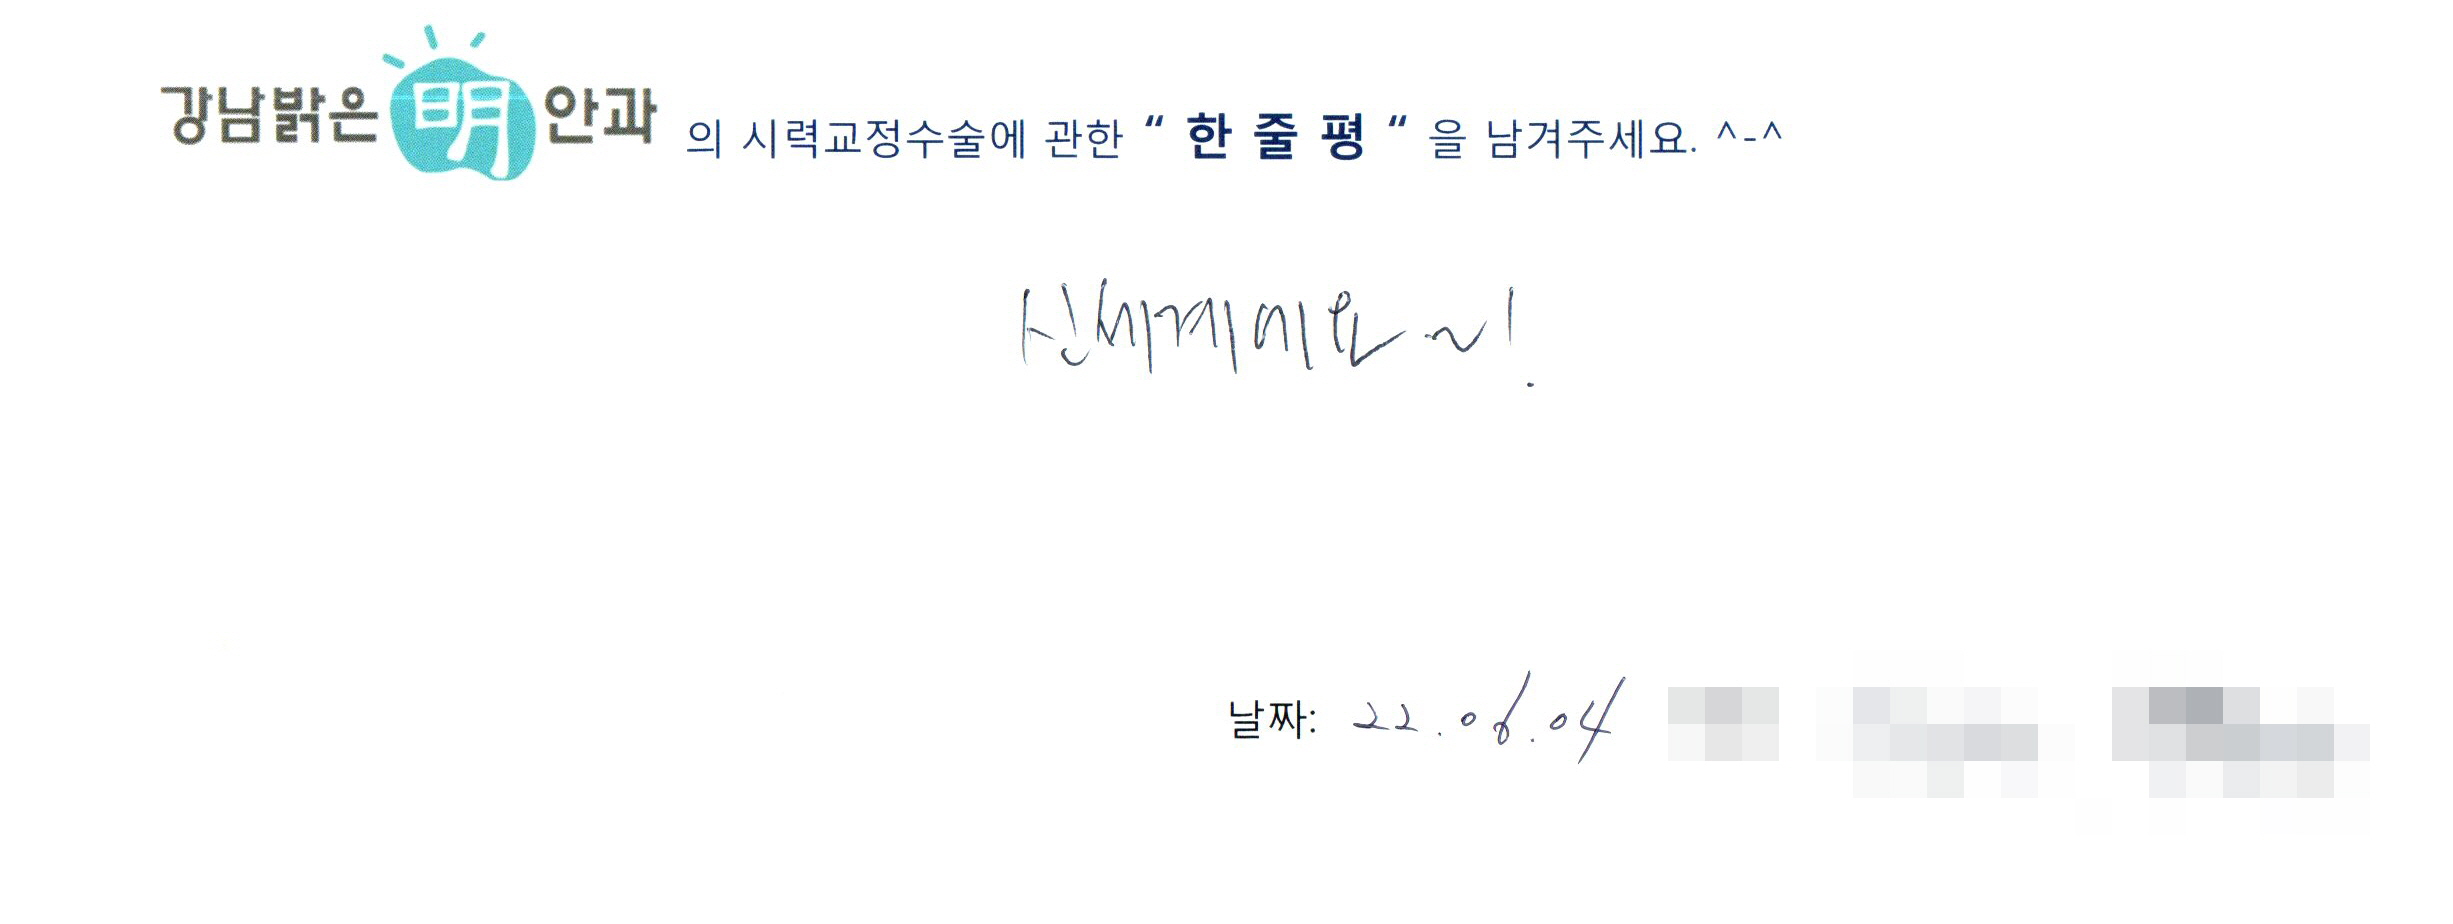 강남밝은 明 안과 의 시력교정수술에 관한 “ 한 줄 평 “ 을 남겨주세요. ^-^
신세계에요~!
날짜: 22.06.04